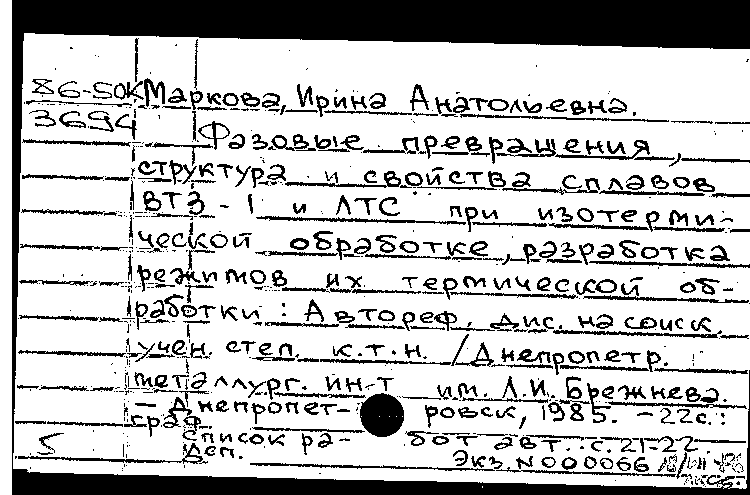 86-50К Маркова, Ирина Анатольевна.
3694
Фазовые превращения,
структура и свойства сплавов
ВТ3-1 и ЛТС при изотерми-
ческой обработке, разработка
режимов их термической об-
работки: Автореф. дис. на соиск.
учен. степ. к.т.н. / Днепропетр.
металлург. ин-т им. Л.И. Брежнева.
— Днепропет- ровск, 1985. - 22с.:
граф.
Список ра- бот авт.: с. 21-22.
5 Дсп. Экз. N 000066